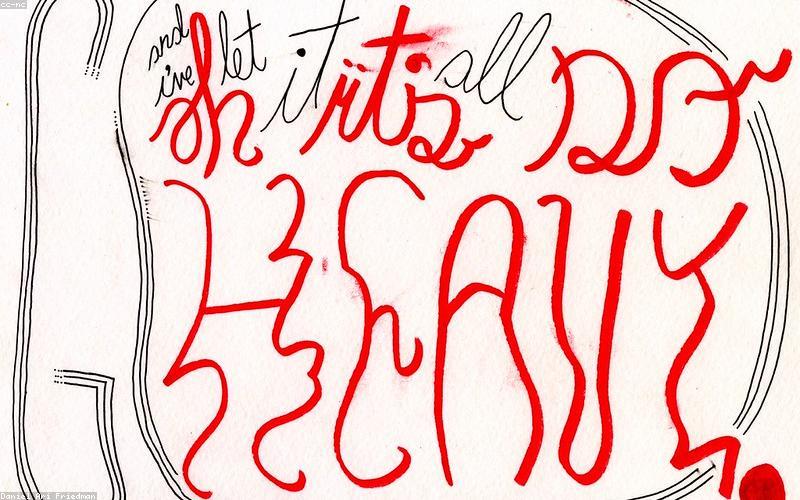 cc-nc
and i've let it all
oh it's so
HEAVY
Daniel Ari Friedman